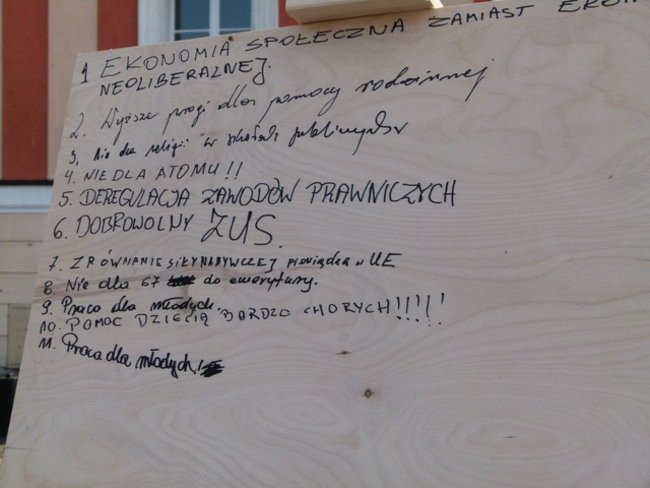 1 EKONOMIA SPOŁECZNA ZAMIAST
NEOLIBERALNEJ.
2. Wyższe progi dla pomocy rodzinnej
3. Nie dla religii w szkołach publicznych
4. NIE DLA ATOMU!!
5. DEREGULACJA ZAWODÓW PRAWNICZYCH
6. DOBROWOLNY ZUS.
7. ZRÓWNANIE SIŁY NABYWCZEJ pieniądza w UE
8. Nie dla 67 do emerytury.
9. Praca dla młodych.
10. POMOC DZIECIĄ BARDZO CHORYCH!!!!!
11. Praca dla młodych!